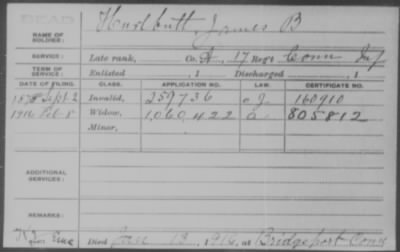 DEAD
NAME OF SOLDIER: Hurlbutt, James B
SERVICE: Late rank, Co. A, 17 Reg't Conn Inf
TERM OF SERVICE: Enlisted , 1 Discharged , 1
DATE OF FILING. CLASS. APPLICATION NO. LAW. CERTIFICATE NO.
1878 Sept. 2 Invalid, 259736 160910
1916 Feb. 8 Widow, 1,060,422 805812
Minor,
ADDITIONAL SERVICES:
REMARKS:
Died Jan 13, 1916, at Bridgeport Conn